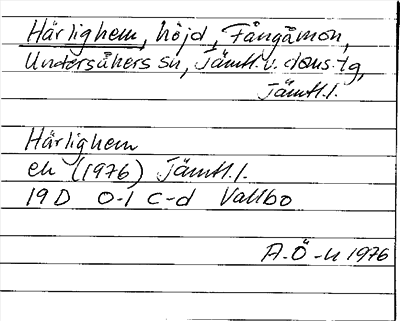 Härlighem, höjd, Fångåmon,
Undersåkers sn, Jämtl. v. doms-tg,
Jämtl.l.
Härlighem
ek (1976) Jämtl.l.
19D 0-1 c-d Vallbo
A-Ö -n 1976